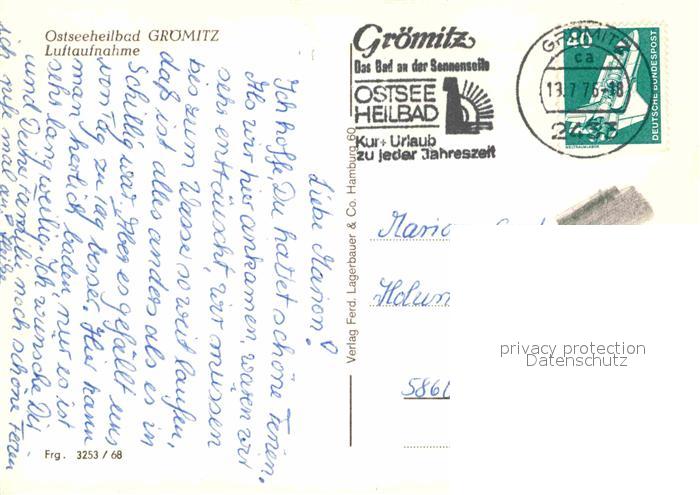 Ostseeheilbad GRÖMITZ
Luftaufnahme
Liebe Marion!
Ich hoffe Du hattest schöne Ferien.
Als wir hier ankamen, waren wir
sehr enttäuscht, wir müssen
bis zum Wasser so weit laufen,
daß ist alles anders als es in
Schillig war. Aber es gefällt uns
von Tag zu Tag besser. Hier kann
man herlich baden, nur es ist
sehr langweilig. Ich wünsche Dir
und Deine Familie noch schöne
ich rufe mal an.
Frg. 3253 / 68
Verlag Ferd. Lagerbauer & Co. Hamburg 60
Grömitz
Das Bad an der Sonnenseite
OSTSEE
HEILBAD
Kur+Urlaub
zu jeder Jahreszeit
GRÖMITZ
ca
13.7.76-18
2433
40
DEUTSCHE BUNDESPOST
WELTRAUMLABOR
Mario
586
privacy protection
Datenschutz